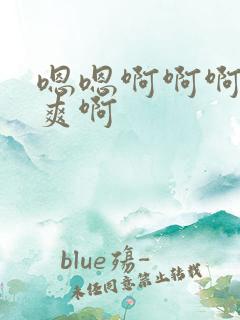 嗯嗯啊啊啊
爽啊
blue殇-
未经同意禁止转载